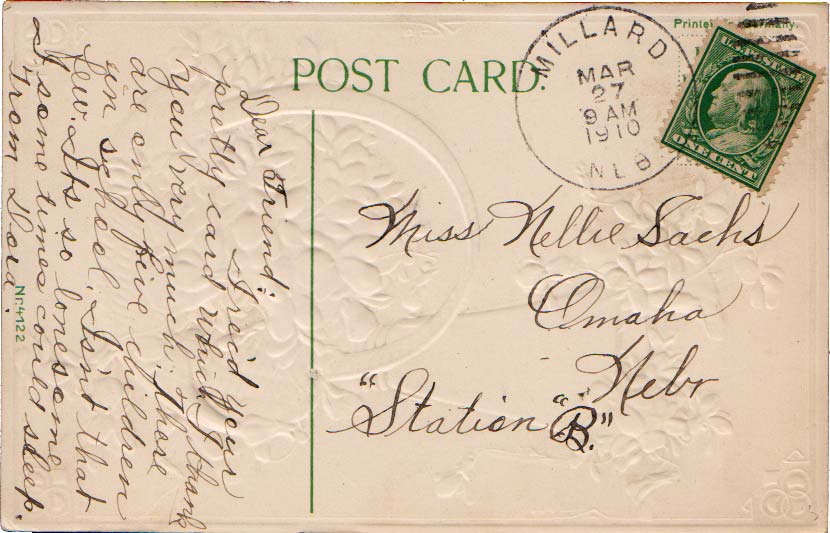 POST CARD.
Printed in Germany.
MILLARD
MAR
27
9 AM
1910
NEB
U.S. POSTAGE
ONE CENT
Dear Friend:
I rec'd your
pretty card which I thank
you very much. There
are only five children
in school. Isn't that
few. Its so lonesome
I some times could sleep.
From Nora.
Nr. 4122
Miss Nellie Sachs
Omaha
Nebr
"Station "B."